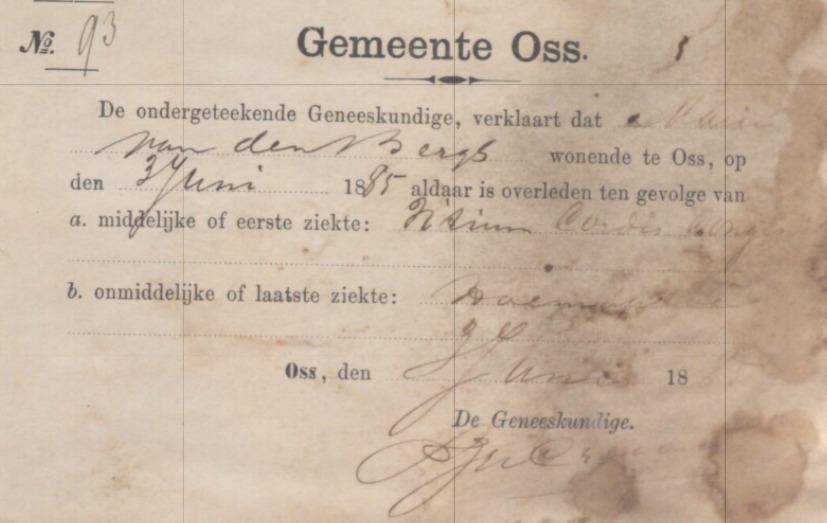 No. 93
Gemeente Oss.
De ondergeteekende Geneeskundige, verklaart dat Maria
van den Bergh wonende te Oss, op
den 3 Juni 1885 aldaar is overleden ten gevolge van
a. middelijke of eerste ziekte: Vitium Cordis
b. onmiddelijke of laatste ziekte:
3 Juni
Oss, den 18
De Geneeskundige.